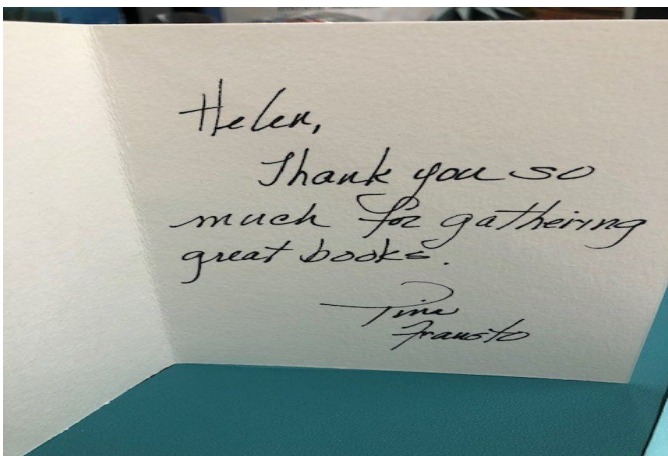 Helen,
Thank you so
much for gathering
great books.
Tina
Frausto